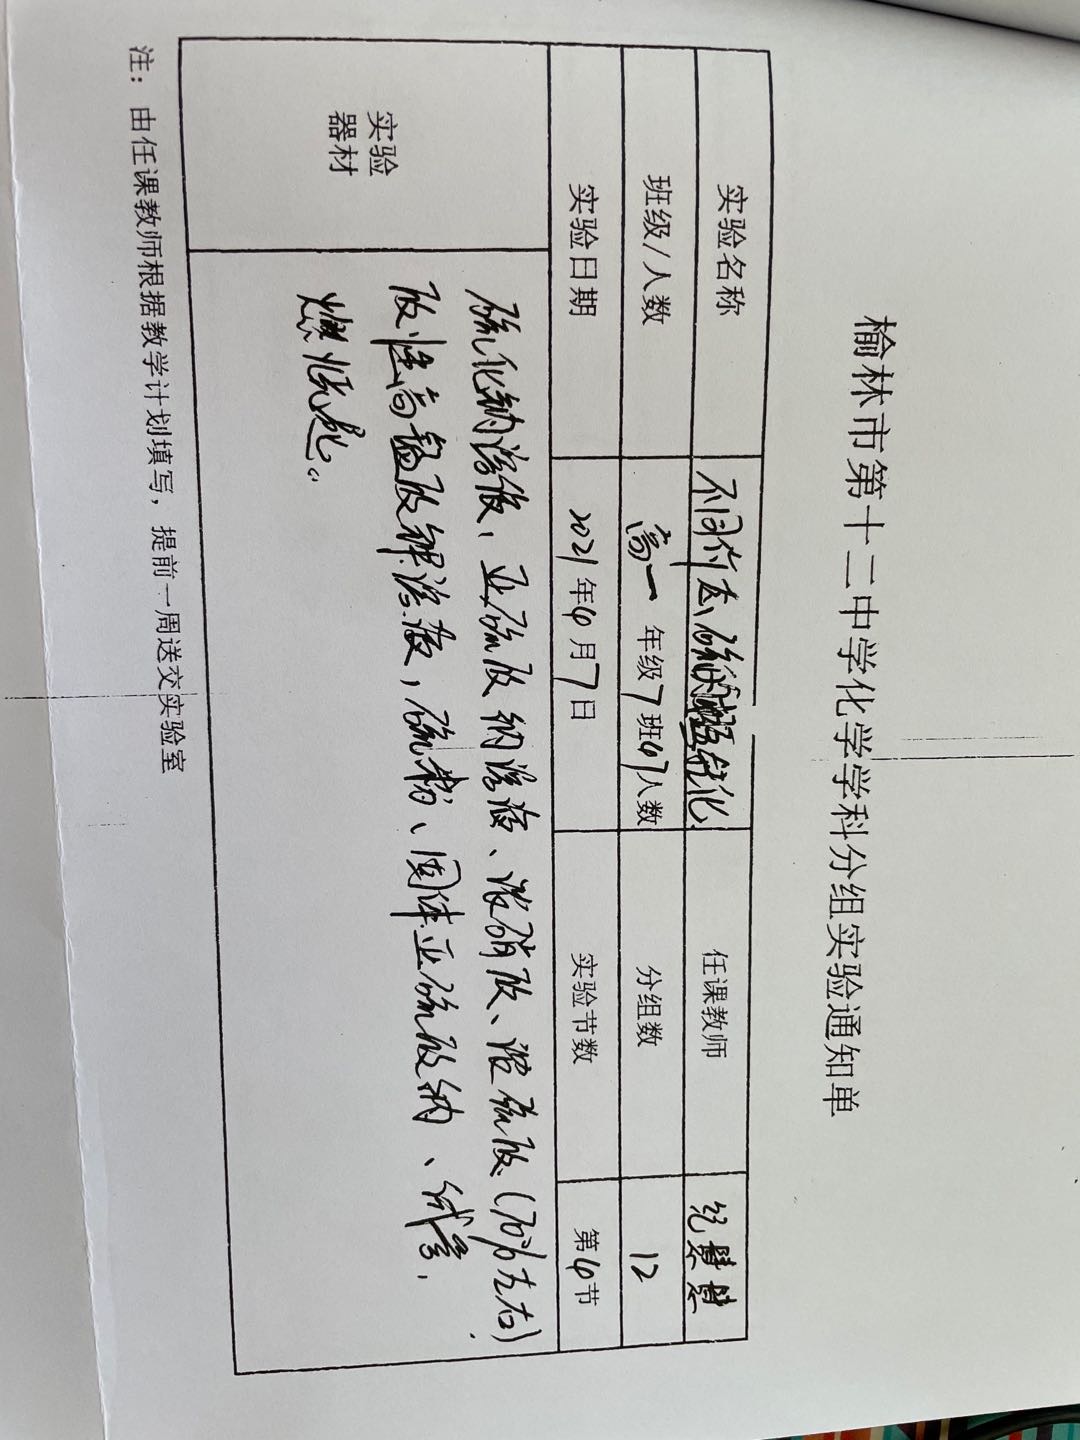 榆林市第十二中学化学学科分组实验通知单
实验名称 不同价态硫的转化 任课教师
班级/人数 高一 年级7班47人数 分组数 12
实验日期 2021年4月7日 实验节数 第4节
实验
器材
硫化钠溶液、亚硫酸钠溶液、浓硝酸、浓硫酸(70%左右)
酸性高锰酸钾溶液,硫粉、固体亚硫酸钠、试管,
燃烧匙。
注：由任课教师根据教学计划填写，提前一周送交实验室